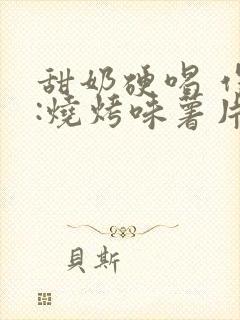 甜奶硬唱
:燒烤味薯片
貝斯